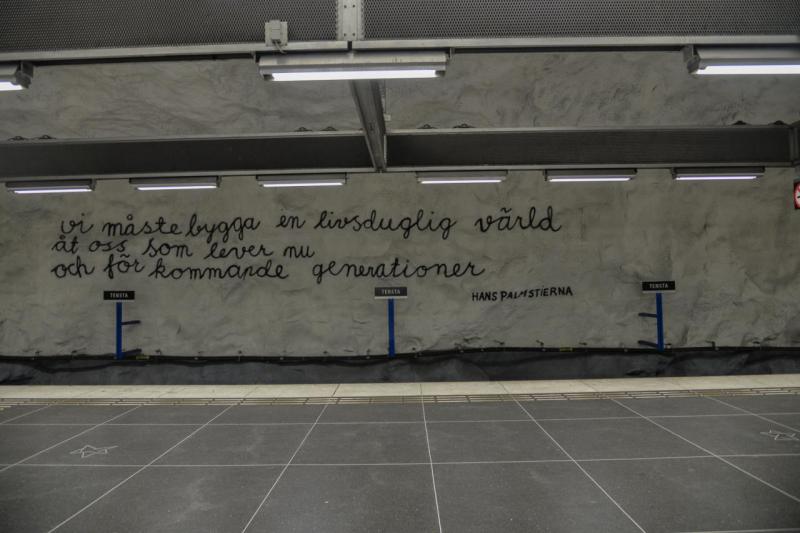 vi måste bygga en livsduglig värld
åt oss som lever nu
och för kommande generationer
HANS PALMSTIERNA
TENSTA
TENSTA
TENSTA